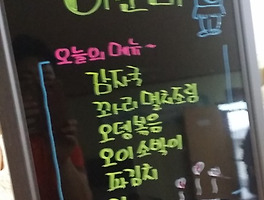 오늘의 메뉴~
감자국
꽈리멸치조림
오뎅볶음
오이소박이
파김치